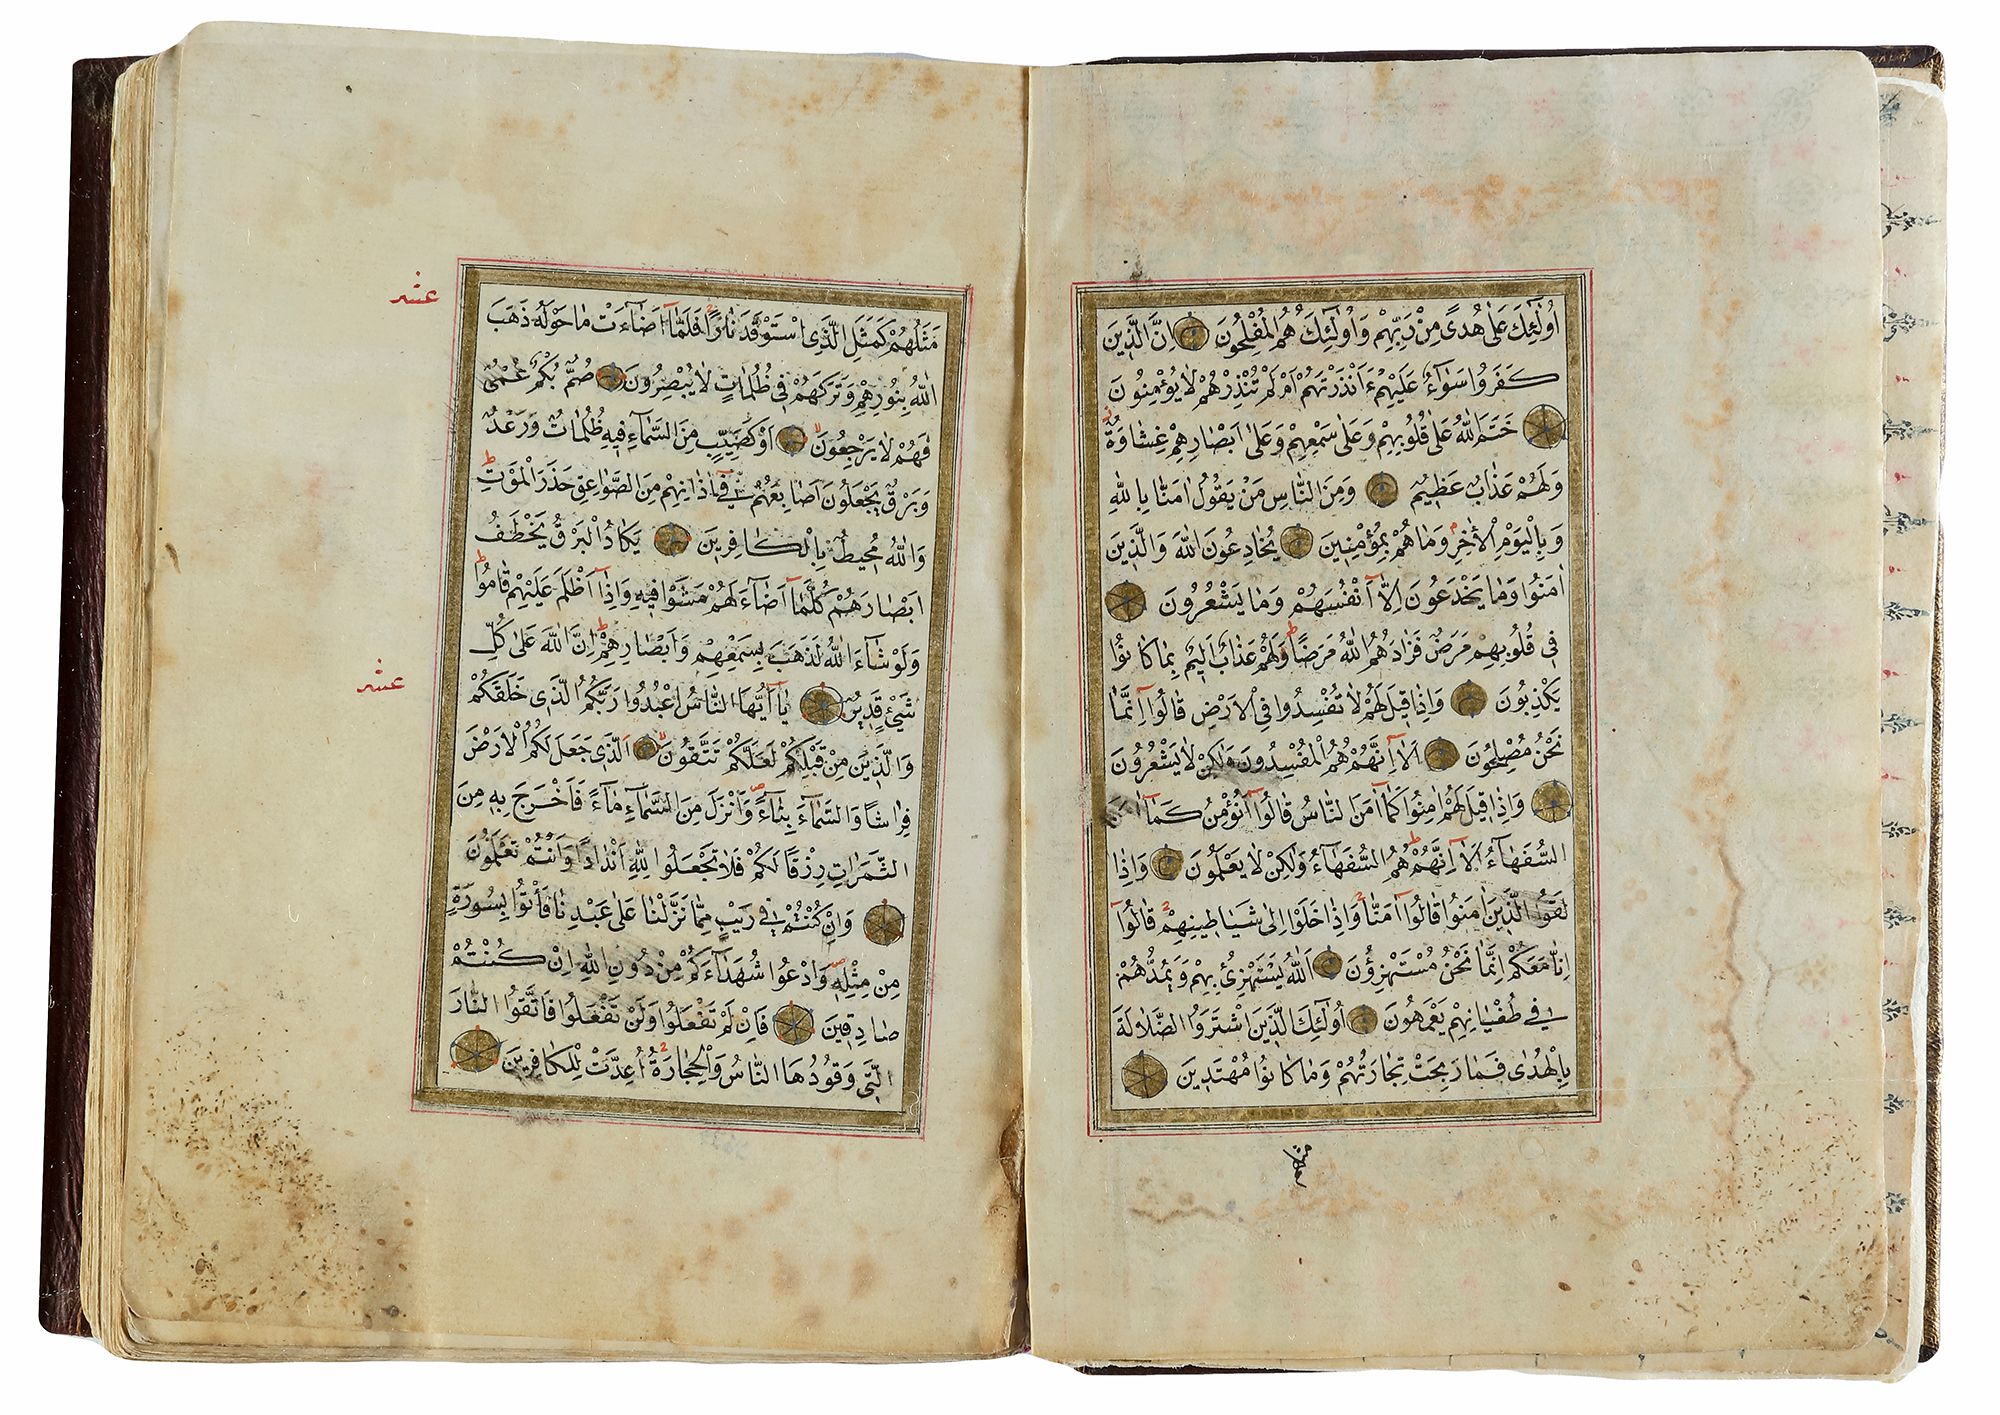 اُولٰٓئِكَ عَلٰى هُدًى مِنْ رَبِّهِمْ وَاُولٰٓئِكَ هُمُ الْمُفْلِحُونَ اِنَّ الَّذِينَ
كَفَرُوا سَوَٓاءٌ عَلَيْهِمْ ءَاَنْذَرْتَهُمْ اَمْ لَمْ تُنْذِرْهُمْ لَا يُؤْمِنُونَ
خَتَمَ اللّٰهُ عَلٰى قُلُوبِهِمْ وَعَلٰى سَمْعِهِمْ وَعَلٰٓى اَبْصَارِهِمْ غِشَاوَةٌ
وَلَهُمْ عَذَابٌ عَظِيمٌ وَمِنَ النَّاسِ مَنْ يَقُولُ اٰمَنَّا بِاللّٰهِ
وَبِالْيَوْمِ الْاٰخِرِ وَمَا هُمْ بِمُؤْمِنِينَ يُخَادِعُونَ اللّٰهَ وَالَّذِينَ
اٰمَنُوا وَمَا يَخْدَعُونَ اِلَّٓا اَنْفُسَهُمْ وَمَا يَشْعُرُونَ
فِى قُلُوبِهِمْ مَرَضٌ فَزَادَهُمُ اللّٰهُ مَرَضًا وَلَهُمْ عَذَابٌ اَلِيمٌ بِمَا كَانُوا
يَكْذِبُونَ وَاِذَا قِيلَ لَهُمْ لَا تُفْسِدُوا فِى الْاَرْضِ قَالُٓوا اِنَّمَا
نَحْنُ مُصْلِحُونَ اَلَٓا اِنَّهُمْ هُمُ الْمُفْسِدُونَ وَلٰكِنْ لَا يَشْعُرُونَ
وَاِذَا قِيلَ لَهُمْ اٰمِنُوا كَمَٓا اٰمَنَ النَّاسُ قَالُٓوا اَنُؤْمِنُ كَمَٓا اٰمَنَ
السُّفَهَٓاءُ اَلَٓا اِنَّهُمْ هُمُ السُّفَهَٓاءُ وَلٰكِنْ لَا يَعْلَمُونَ وَاِذَا
لَقُوا الَّذِينَ اٰمَنُوا قَالُٓوا اٰمَنَّا وَاِذَا خَلَوْا اِلٰى شَيَاطِينِهِمْ قَالُٓوا
اِنَّا مَعَكُمْ اِنَّمَا نَحْنُ مُسْتَهْزِؤُنَ اَللّٰهُ يَسْتَهْزِئُ بِهِمْ وَيَمُدُّهُمْ
فِى طُغْيَانِهِمْ يَعْمَهُونَ اُولٰٓئِكَ الَّذِينَ اشْتَرَوُا الضَّلَالَةَ
بِالْهُدٰى فَمَا رَبِحَتْ تِجَارَتُهُمْ وَمَا كَانُوا مُهْتَدِينَ
عشر
مَثَلُهُمْ كَمَثَلِ الَّذِى اسْتَوْقَدَ نَارًا فَلَمَّٓا اَضَٓاءَتْ مَا حَوْلَهُ ذَهَبَ
اللّٰهُ بِنُورِهِمْ وَتَرَكَهُمْ فِى ظُلُمَاتٍ لَا يُبْصِرُونَ صُمٌّ بُكْمٌ عُمْىٌ
فَهُمْ لَا يَرْجِعُونَ اَوْ كَصَيِّبٍ مِنَ السَّمَٓاءِ فِيهِ ظُلُمَاتٌ وَرَعْدٌ
وَبَرْقٌ يَجْعَلُونَ اَصَابِعَهُمْ فِٓى اٰذَانِهِمْ مِنَ الصَّوَاعِقِ حَذَرَ الْمَوْتِ
وَاللّٰهُ مُحِيطٌ بِالْكَافِرِينَ يَكَادُ الْبَرْقُ يَخْطَفُ
اَبْصَارَهُمْ كُلَّمَٓا اَضَٓاءَ لَهُمْ مَشَوْا فِيهِ وَاِذَٓا اَظْلَمَ عَلَيْهِمْ قَامُوا
وَلَوْ شَٓاءَ اللّٰهُ لَذَهَبَ بِسَمْعِهِمْ وَاَبْصَارِهِمْ اِنَّ اللّٰهَ عَلٰى كُلِّ
عشر
شَىْءٍ قَدِيرٌ يَٓا اَيُّهَا النَّاسُ اعْبُدُوا رَبَّكُمُ الَّذِى خَلَقَكُمْ
وَالَّذِينَ مِنْ قَبْلِكُمْ لَعَلَّكُمْ تَتَّقُونَ اَلَّذِى جَعَلَ لَكُمُ الْاَرْضَ
فِرَاشًا وَالسَّمَٓاءَ بِنَٓاءً وَاَنْزَلَ مِنَ السَّمَٓاءِ مَٓاءً فَاَخْرَجَ بِهِ مِنَ
الثَّمَرَاتِ رِزْقًا لَكُمْ فَلَا تَجْعَلُوا لِلّٰهِ اَنْدَادًا وَاَنْتُمْ تَعْلَمُونَ
وَاِنْ كُنْتُمْ فِى رَيْبٍ مِمَّا نَزَّلْنَا عَلٰى عَبْدِنَا فَأْتُوا بِسُورَةٍ
مِنْ مِثْلِهِ وَادْعُوا شُهَدَٓاءَكُمْ مِنْ دُونِ اللّٰهِ اِنْ كُنْتُمْ
صَادِقِينَ فَاِنْ لَمْ تَفْعَلُوا وَلَنْ تَفْعَلُوا فَاتَّقُوا النَّارَ
الَّتِى وَقُودُهَا النَّاسُ وَالْحِجَارَةُ اُعِدَّتْ لِلْكَافِرِينَ